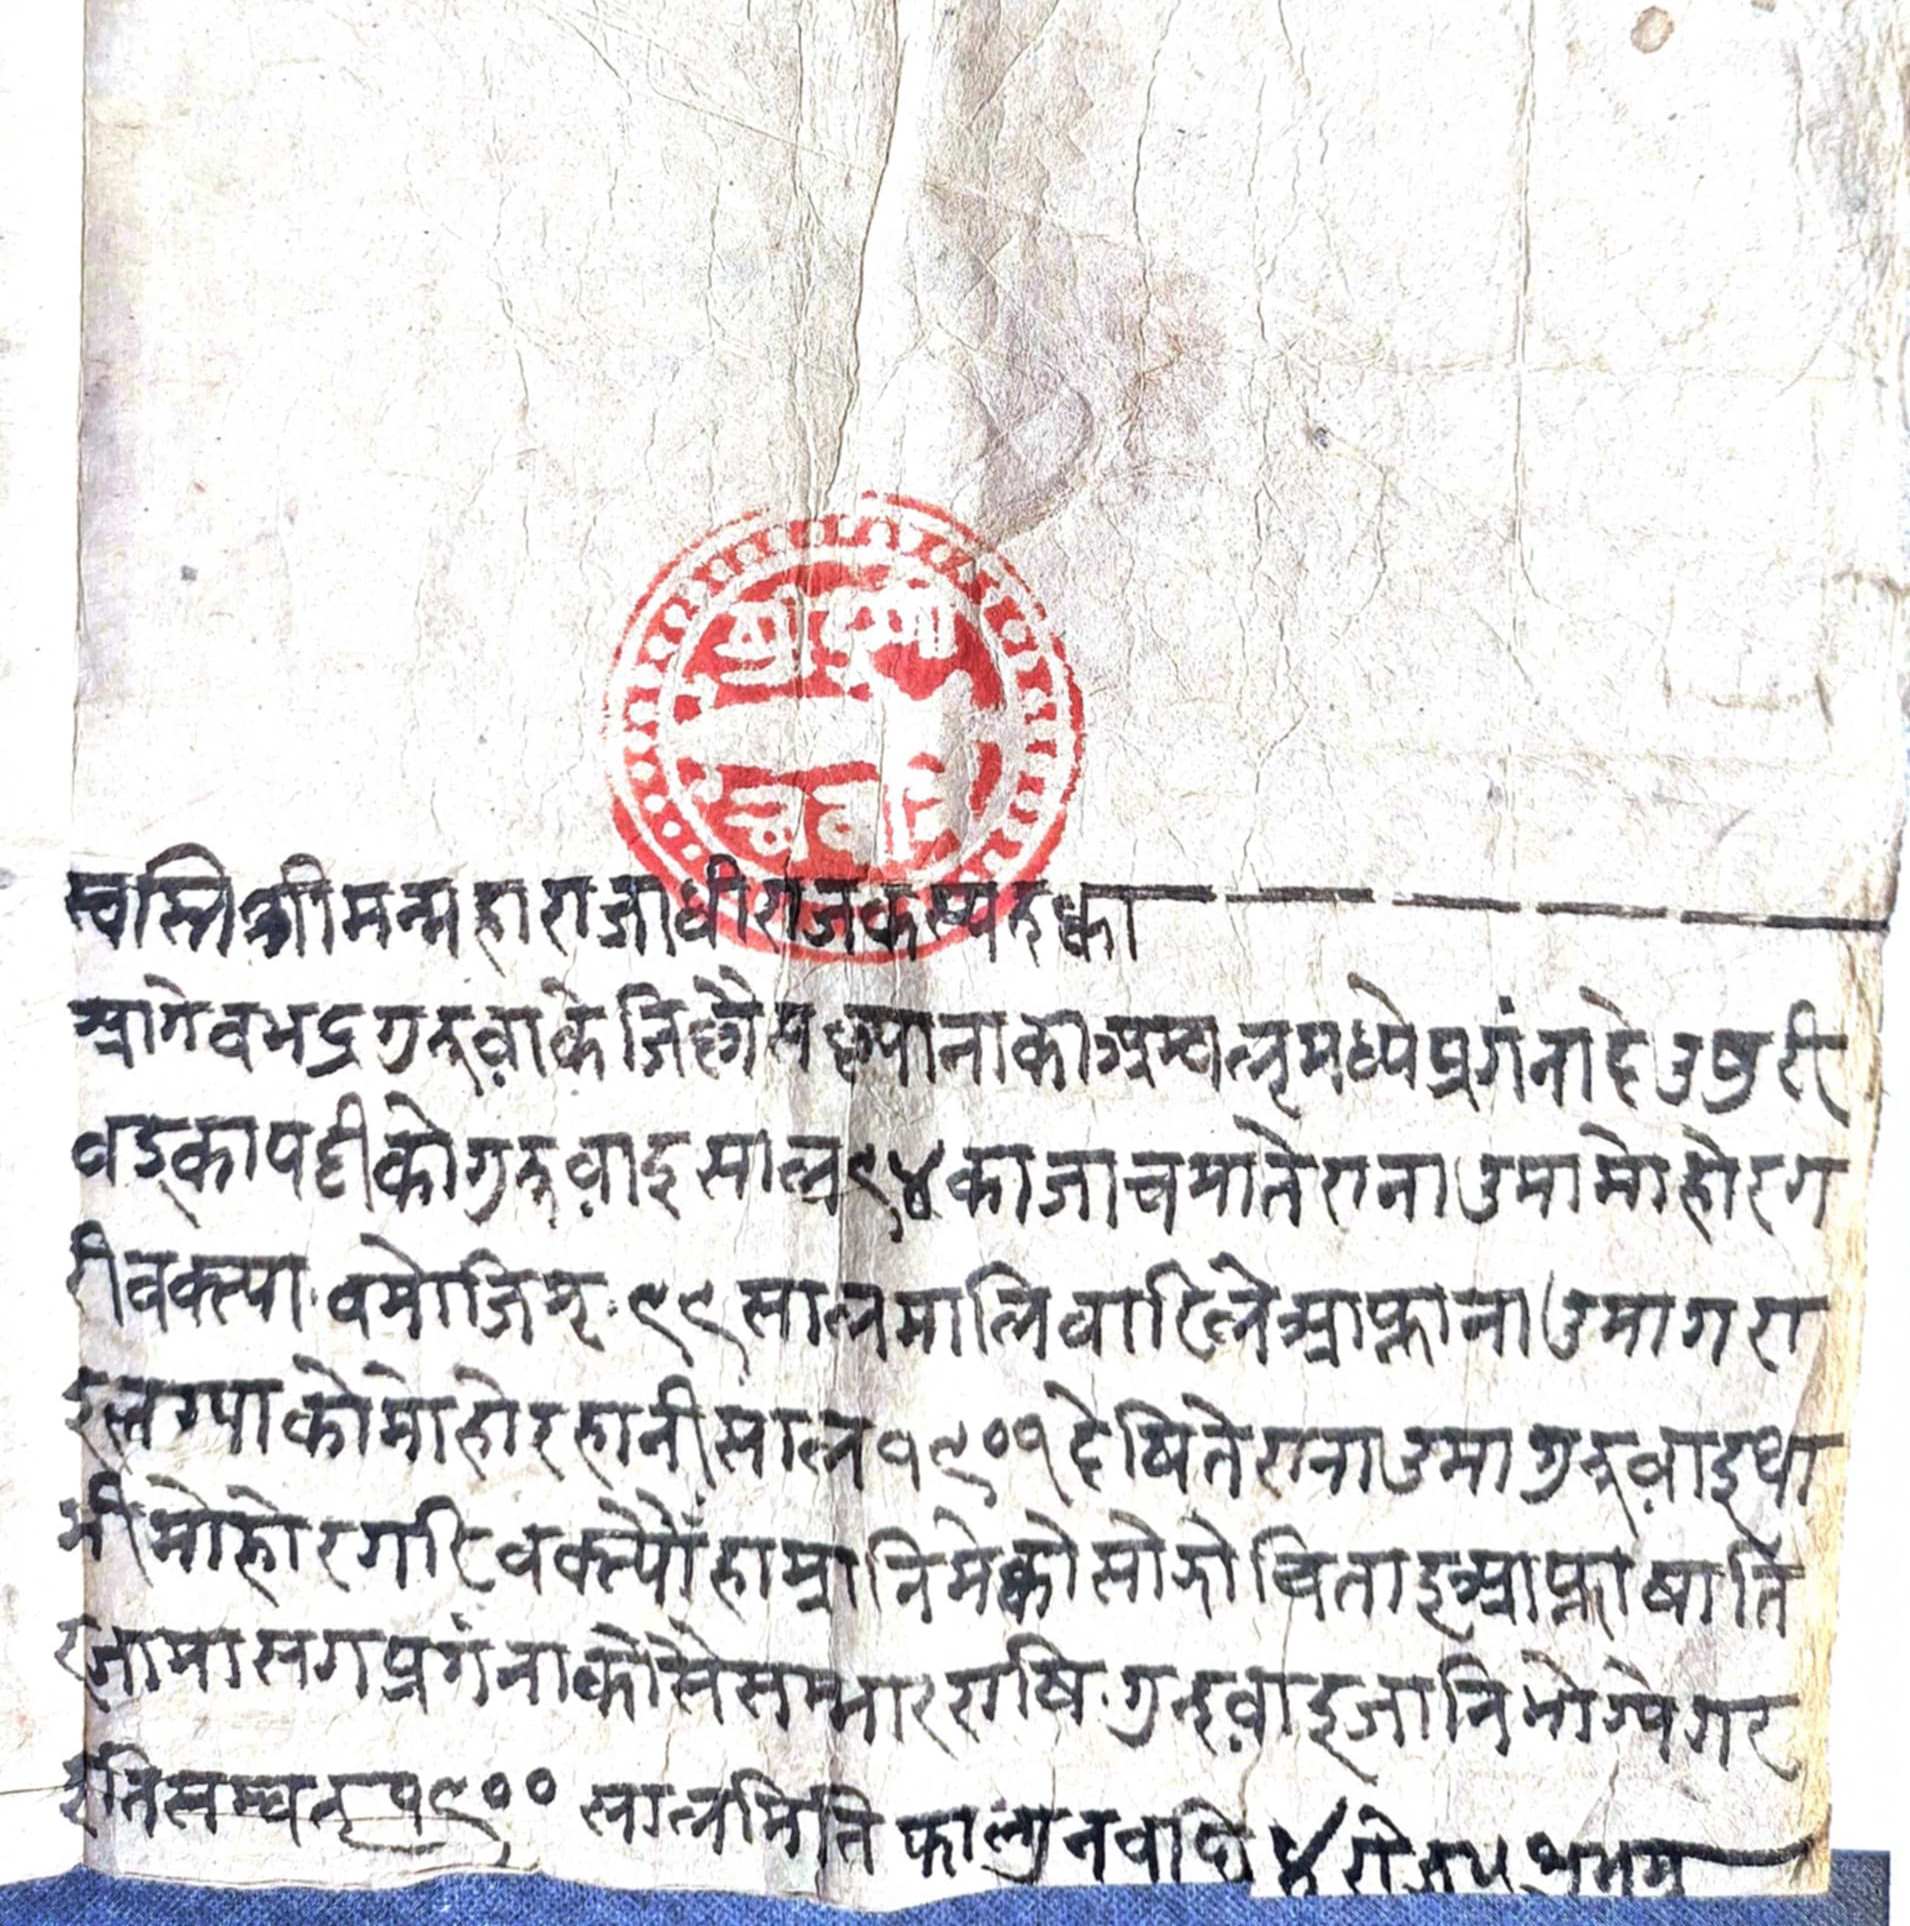 श्री दुर्गा
भवानी
स्वस्तिश्रीमन्महाराजाधीराजकस्य रुक्का
आगे वभद्र गुरूवाके जिछौसछ्याना का अम्वल् मध्ये प्रगंना देउषुरी
वड्का पट्टी को गुरूवाइ साल ९४ का जाचमा तेरा नाउमा मोहोर ग
री वक्त्या वमोजिम् ९९ सालमा लिवारिले आफ्ना नाउमा गरा
इ लग्या को मोहोर हानी साल १९०१ देषि तेरा नाउमा गुरूवाइ था
मी मोहोर गरि वक्स्यौं हाम्रा निमेक्को सोझो चिताइ आफ्ना षाति
र्जामा सग प्रगंना को सैसम्भार राषि गुरूवाइ जानि भोग्य गर
इति सम्वत् १९०० साल मिति फाल्गुन वदि ४ रोज शुभम्